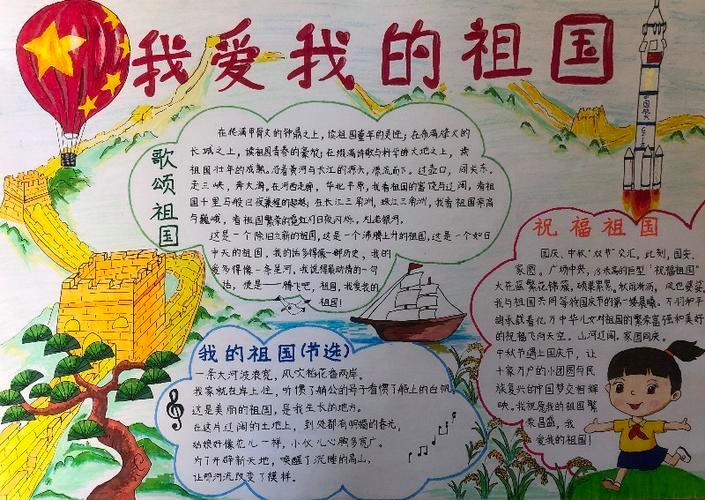 我爱我的祖国
中国航天
歌颂祖国
在爬满甲骨文的钟鼎之上，读祖国童年的灵性；在布满烽火的
长城之上，读祖国青春的豪放；在缀满诗歌与科学的大地之上，读
祖国壮年的成熟。沿着黄河与长江的源头，漂流而下。过壶口，闯关东，
走三峡，奔大海。在河西走廊，华北平原，我看祖国的富饶与辽阔，看祖
国十里与日夜兼程的超越；在长江三角洲，珠江三角洲，我看祖国崇高
与巍峨，看祖国繁荣的霓虹灯日夜闪烁。灿若银河。
这是一个除旧立新的祖国，这是一个沸腾上升的祖国，这是一个如日
中天的祖国。我的话多得像一部历史，我的
爱多得像一条星河，我说得最动情的一句
话，便是——腾飞吧，祖国，我爱我的
祖国！
祝福祖国
国庆、中秋“双节”交汇，此刻，国安、
家圆。广场中央，18米高的巨型“祝福祖国”
大花篮繁花锦簇，硕果累累。秋雨淅沥，
我与祖国共同等待国庆节的第一缕晨曦。万羽和平
鸽承载着亿万中华儿女对祖国的繁荣富强和美好
的祝福飞向天空。山河辽阔，家圆国庆。
中秋节遇上国庆节，让
千家万户的小团圆与民
族复兴的中国梦交相辉
映。我祝愿我的祖国繁
荣昌盛，我
爱我的祖国！
我的祖国(节选)
一条大河波浪宽，风吹稻花香两岸。
我家就在岸上住，听惯了艄公的号子看惯了船上的白帆
这是美丽的祖国，是我生长的地方。
在这片辽阔的土地上，到处都有明媚的春光。
姑娘好像花儿一样，小伙儿心胸多宽广。
为了开辟新天地，唤醒了沉睡的高山，
让那河流改变了模样。